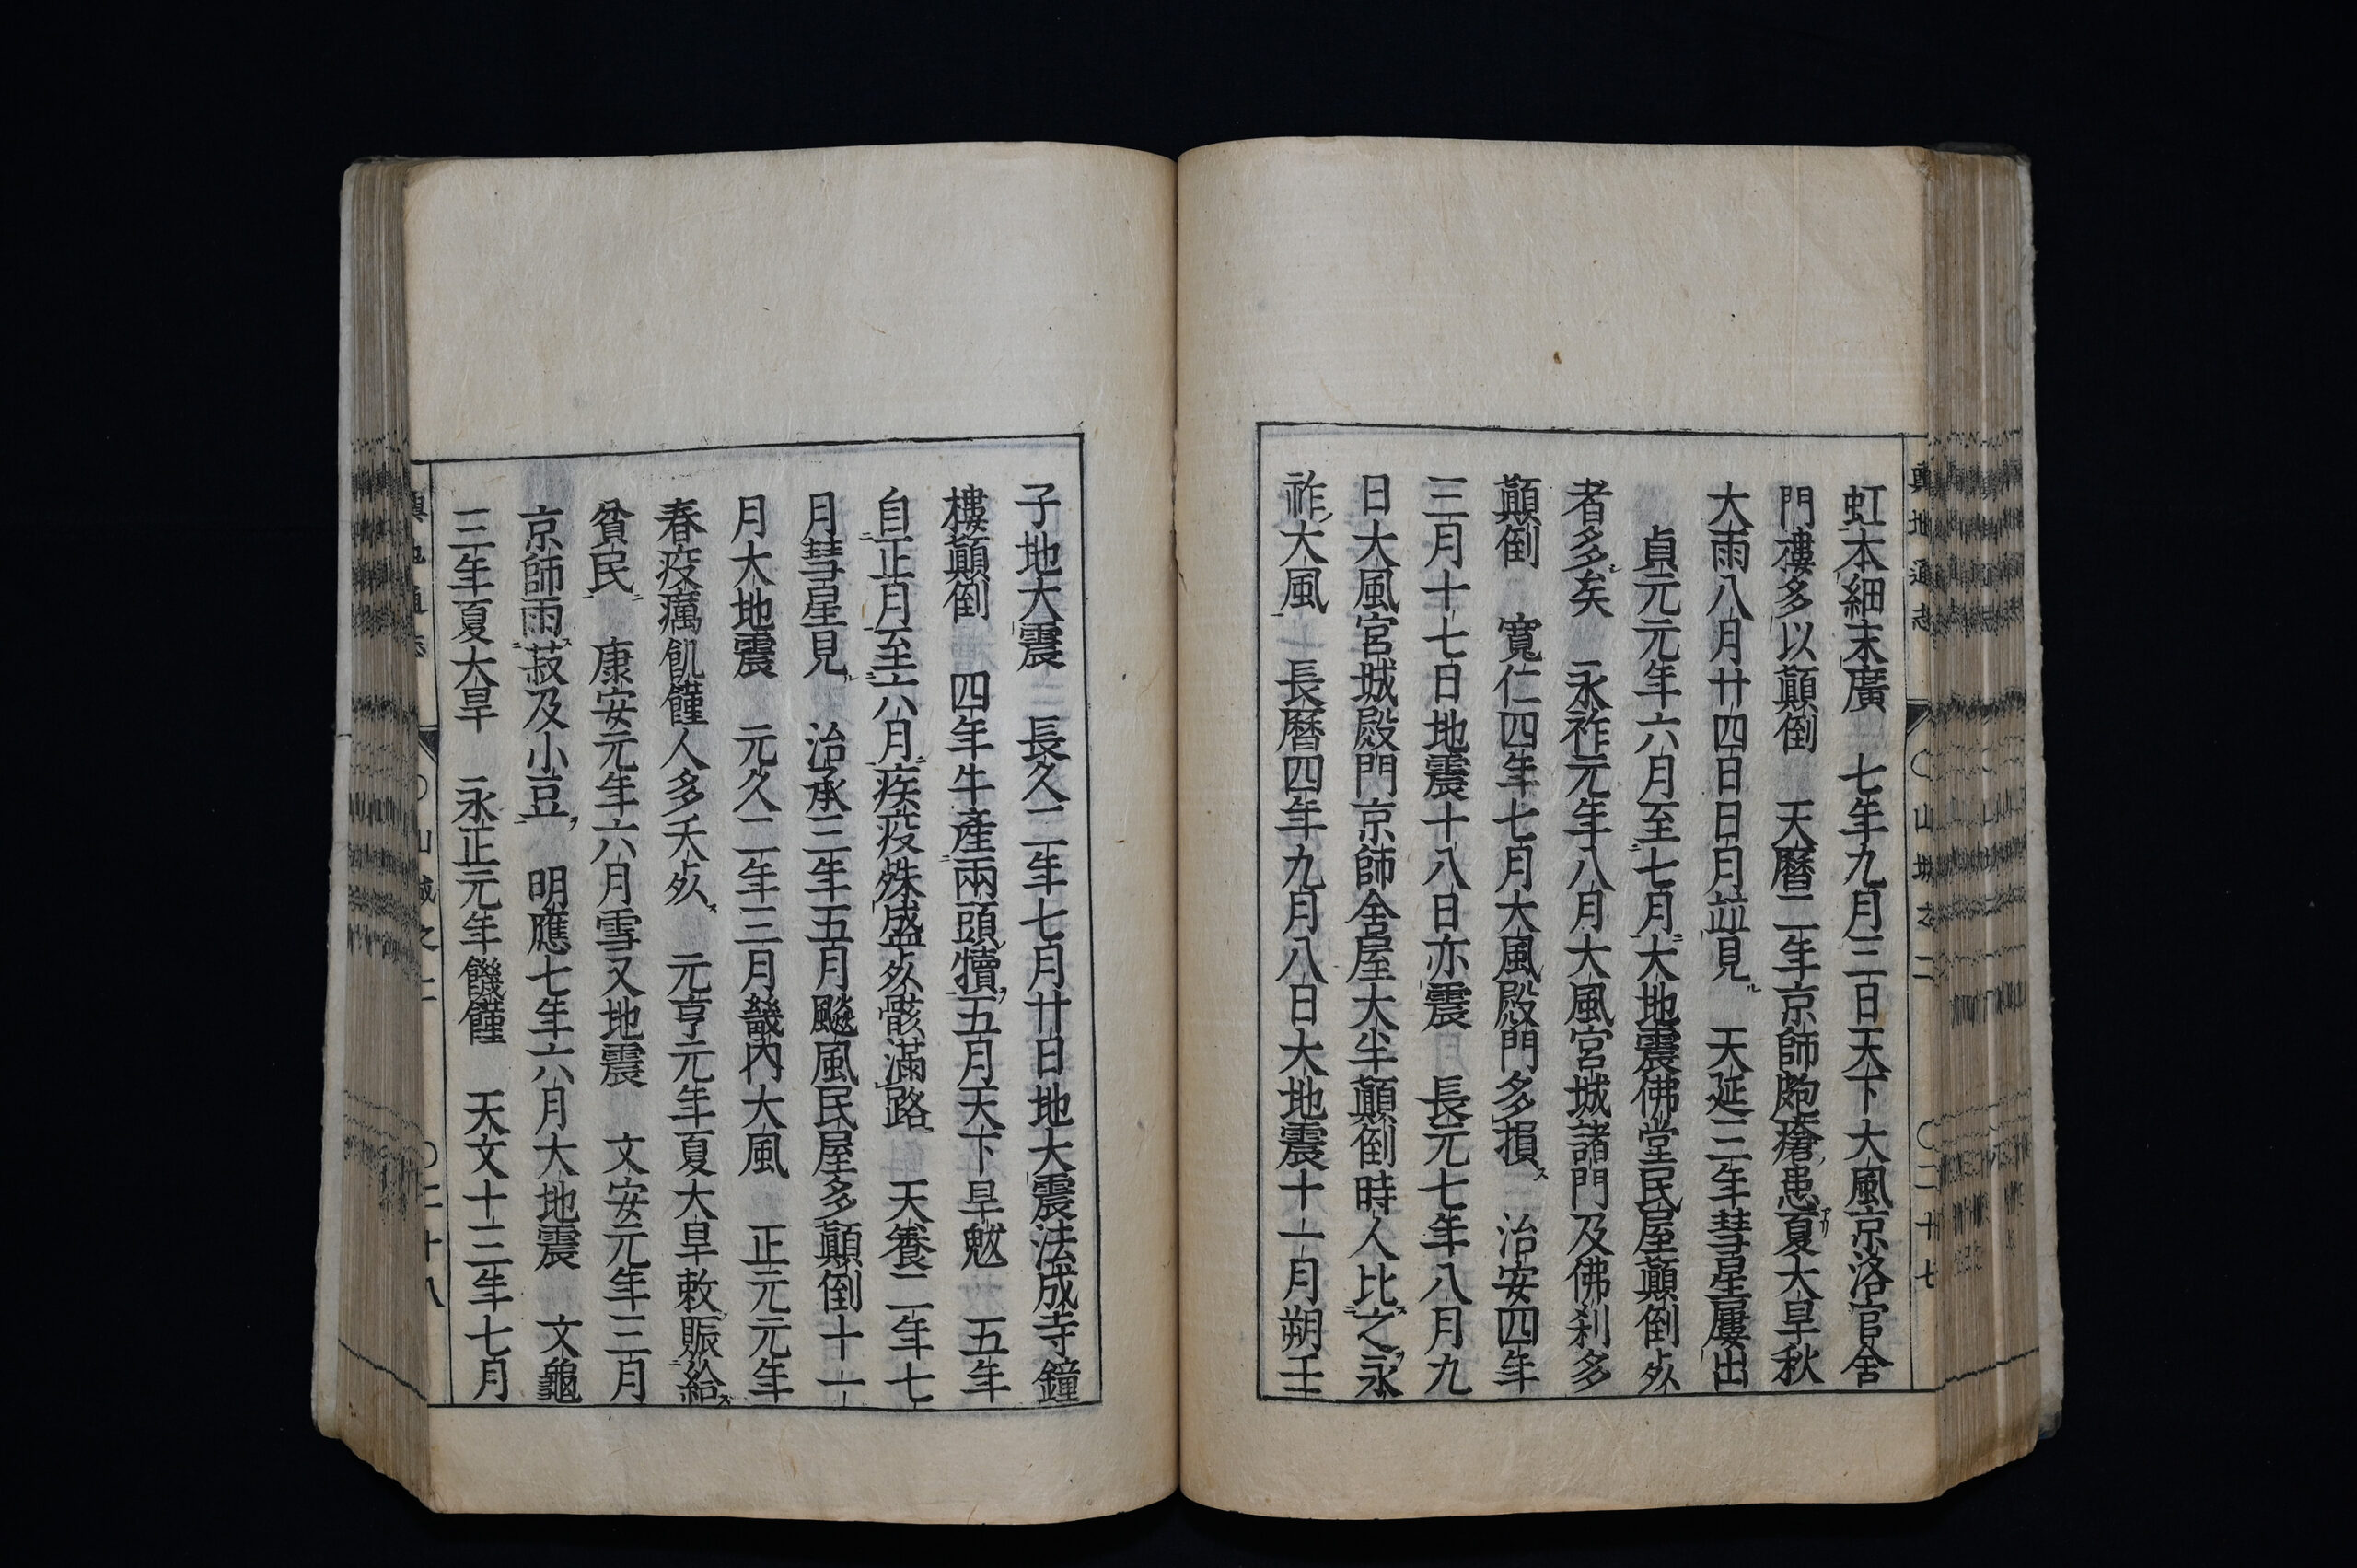 虹本細末廣　七年九月三日天下大風京洛官舍
門樓多以顚倒　天曆二年京師皰瘡患夏大旱秋
大雨八月廿四日日月並見　天延三年彗星屢出
貞元元年六月至七月大地震佛堂民屋顚倒死
者多矣　永祚元年八月大風宮城諸門及佛刹多
顚倒　寬仁四年七月大風殿門多損　治安四年
三月十七日地震十八日亦震　長元七年八月九
日大風宮城殿門京師舍屋大半顚倒時人比之永
祚大風　長曆四年九月八日大地震十一月朔壬
子地大震　長久二年七月廿日地大震法成寺鐘
樓顚倒　四年牛產兩頭犢五月天下旱魃　五年
自正月至六月疾疫殊盛死骸滿路　天養二年七
月彗星見　治承三年五月飈風民屋多顚倒十一
月大地震　元久二年三月畿內大風　正元元年
春疫癘飢饉人多夭死　元亨元年夏大旱敕賑給
貧民　康安元年六月雪又地震　文安元年三月
京師雨菽及小豆　明應七年六月大地震　文龜
三年夏大旱　永正元年饑饉　天文十三年七月
地通志
〇山城之二
〇二十七